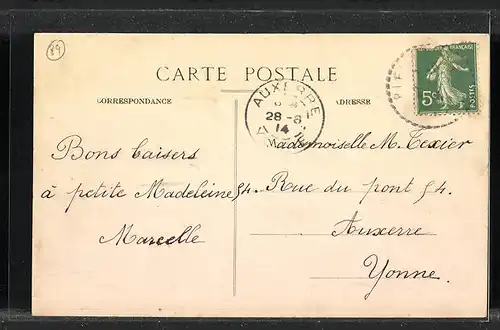 89
CARTE POSTALE
CORRESPONDANCE
ADRESSE
AUXERRE
28-6
14
PIE
FRANÇAISE
5c
POSTES
Bons baisers
à petite Madeleine 54.
Marcelle
Mademoiselle M. Texier
Rue du pont 54.
Auxerre
Yonne.